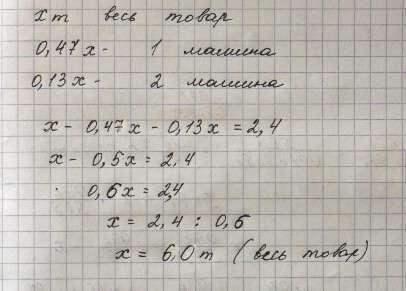 x т весь товар
0,47x - 1 машина
0,13x - 2 машина
x - 0,47x - 0,13x = 2,4
x - 0,5x = 2.4
0,6x = 2,4
x = 2,4 : 0,6
x = 6,0 т (весь товар)